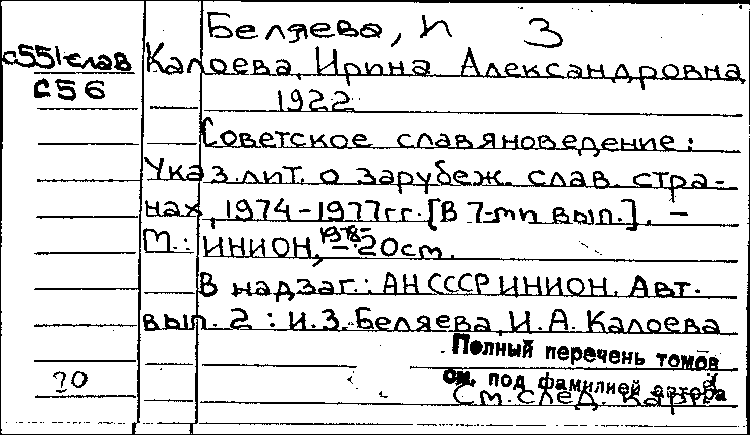 Беляева, И З
с551слав Калоева, Ирина Александровна
С56 1922
Советское славяноведение:
Указ. лит. о зарубеж. слав. стра-
нах, 1974-1977 гг. [В 7-ми вып.]. –
М.: ИНИОН, 1978- – 20 см.
В надзаг.: АН СССР ИНИОН. Авт.
вып. 2: И.З. Беляева, И.А. Калоева
Полный перечень томов
20 см. под фамилией автора
См. след. карт.